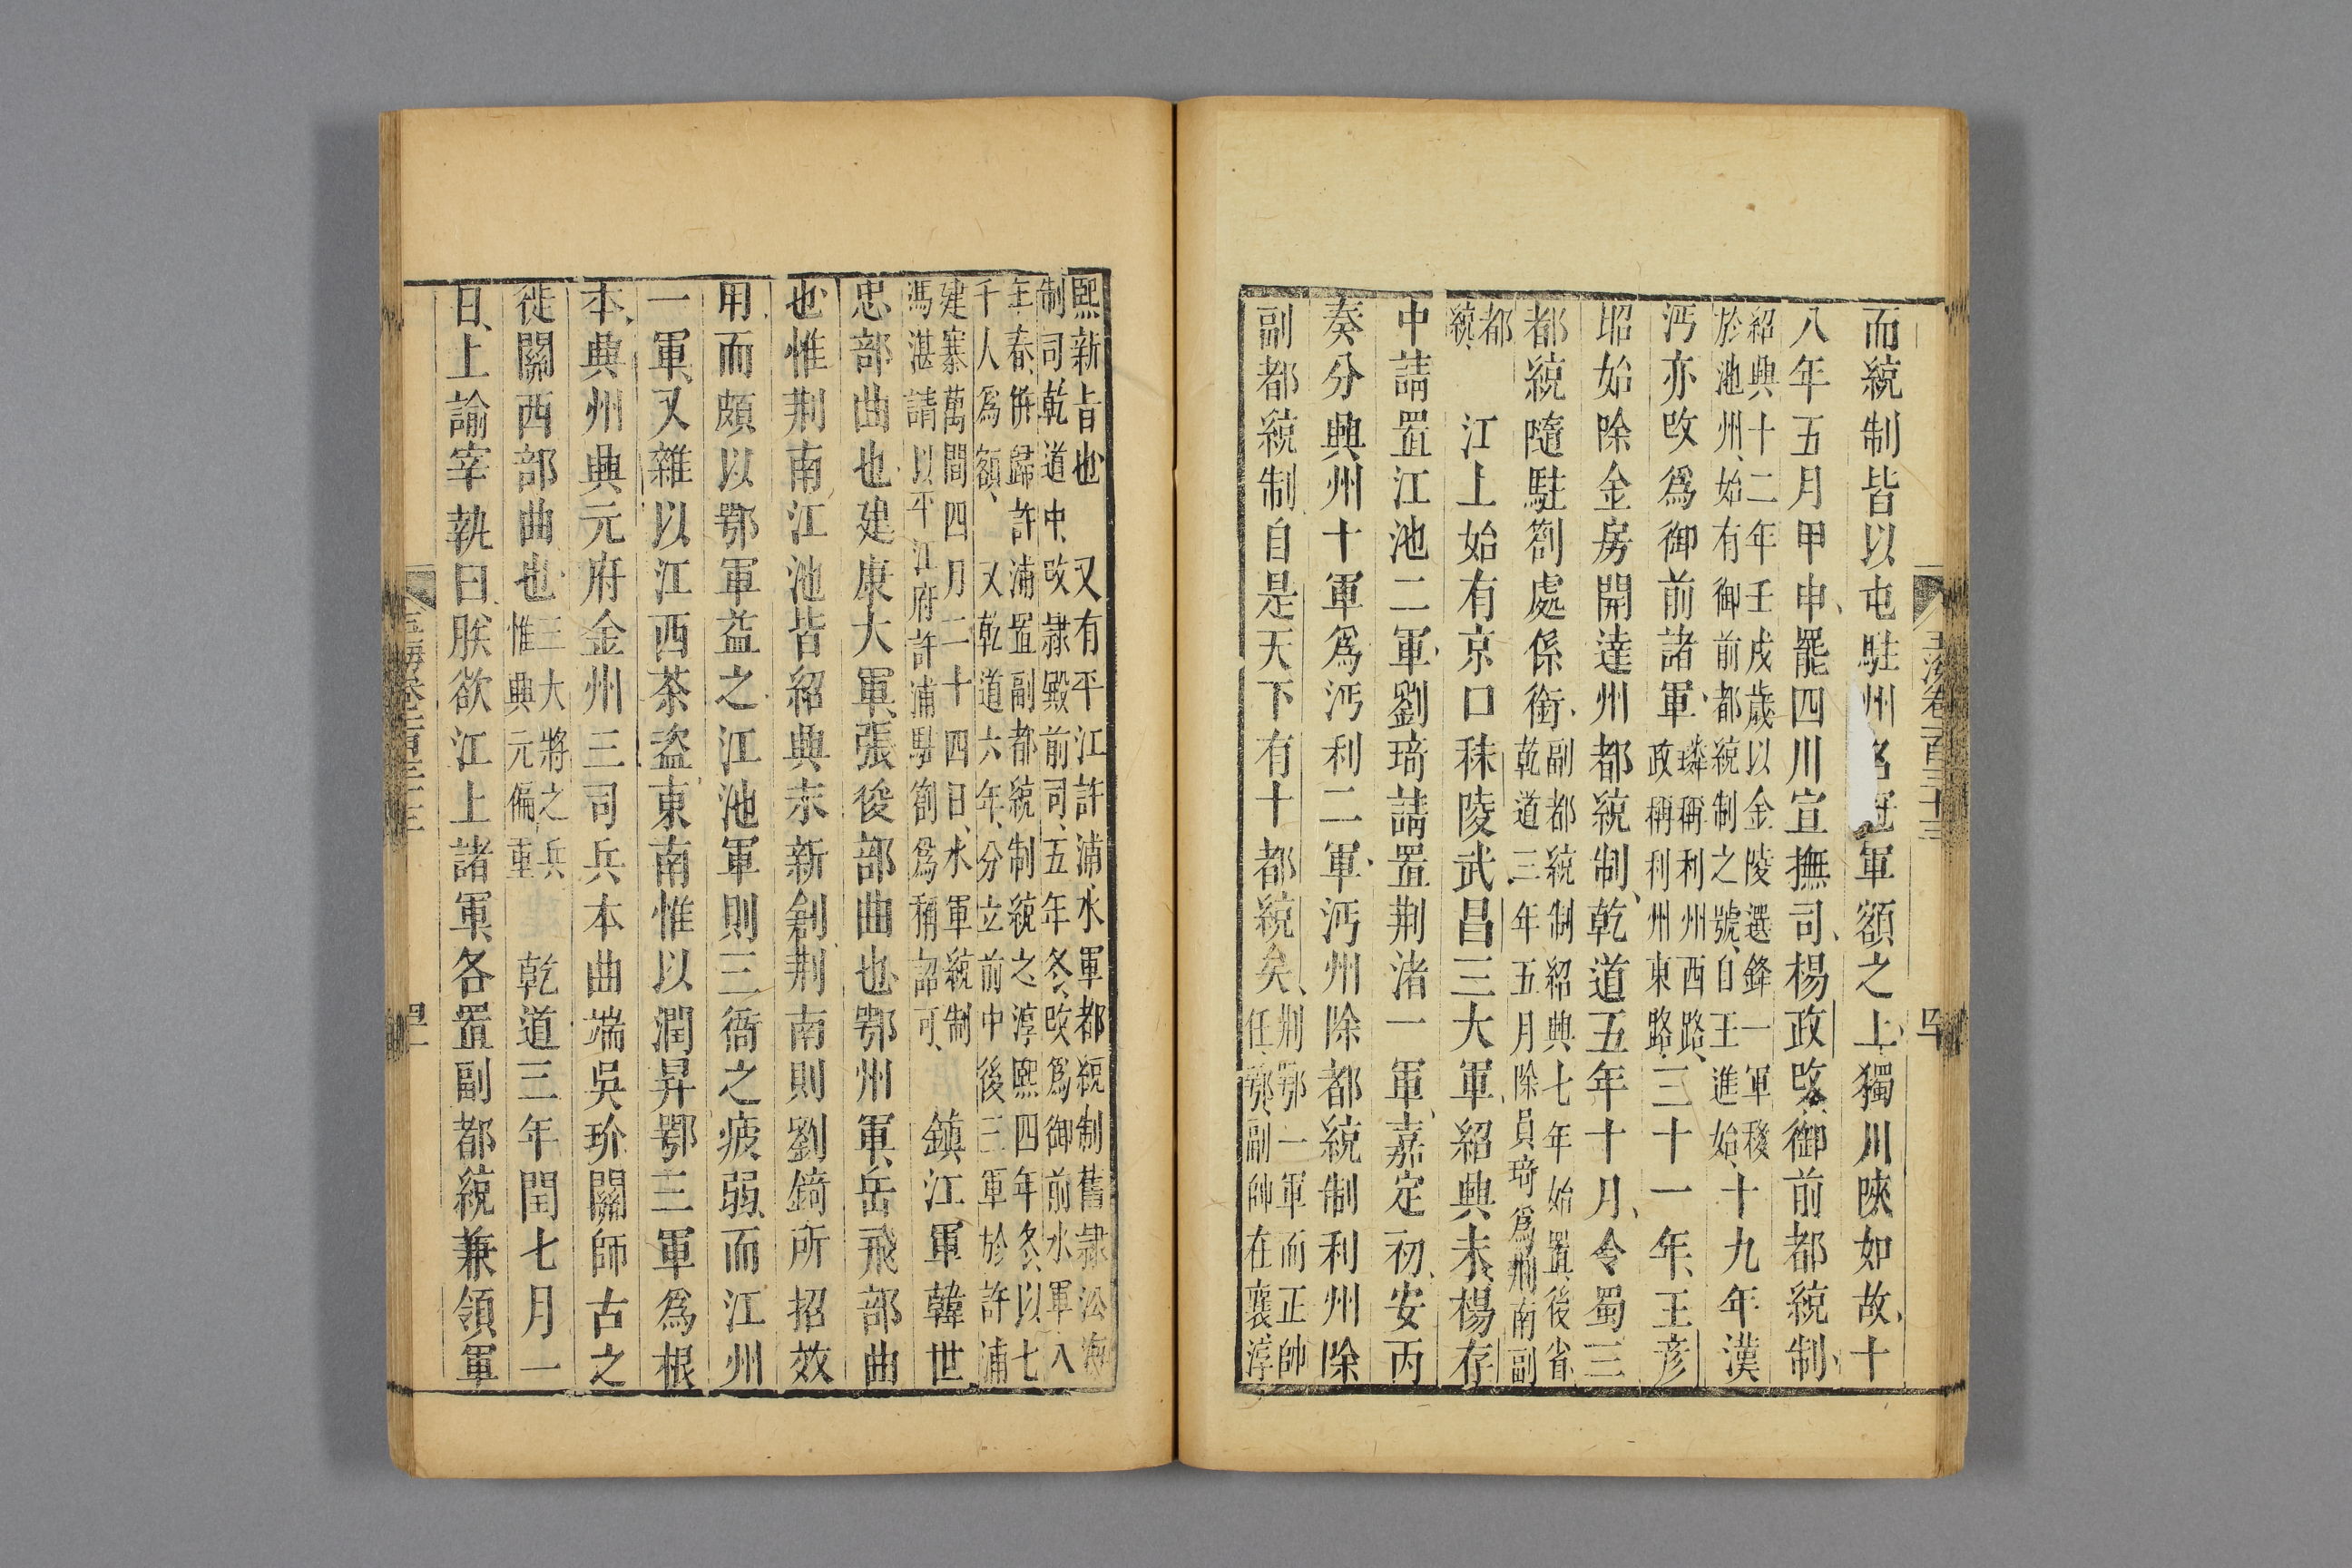 而統制皆以屯駐州名冠軍額之上獨川陝如故十
八年五月甲申罷四川宣撫司楊政改御前都統制
紹興十二年壬戌歲以金陵選鋒一軍移
於池州始有御前都統制之號自王進始
十九年漢
沔亦改爲御前諸軍
璘稱利州西路
政稱利州東路
三十一年王彦
始除金房開達州都統制乾道五年十月令蜀三
都統隨駐劄處係銜
副都統制紹興七年始置後省
乾道三年五月除員琦爲荆南副
都
統
江上始有京口秣陵武昌三大軍紹興末楊存
中請置江池二軍劉琦請置荆渚一軍嘉定初安丙
奏分興州十軍爲沔利二軍沔州除都統制利州除
副都統制自是天下有十都統矣
荆鄂一軍而正帥
任鄂副帥在襄淳
熙新旨也
又有平江許浦水軍都統制舊隷沿海
制司乾道中改隷殿前司五年冬改爲御前水軍八
年春併歸許浦置副都統制統之淳熙四年冬以七
千人爲額
又乾道六年分立前中後三軍於許浦
建寨萬間四月二十四日水軍統制
馮湛請以平江府許浦駐劄爲稱詔可
鎮江軍韓世
忠部曲也建康大軍張俊部曲也鄂州軍岳飛部曲
也惟荆南江池皆紹興末新創荆南則劉錡所招效
用而頗以鄂軍益之江池軍則三衙之疲弱而江州
一軍又雜以江西茶盗東南惟以潤昇鄂三軍爲根
本興州興元府金州三司兵本曲端吳玠關師古之
徙關西部曲也
三大將之兵
惟興元偏重
乾道三年閏七月一
日上諭宰執曰朕欲江上諸軍各置副都統兼領軍
玉海卷一百三十三